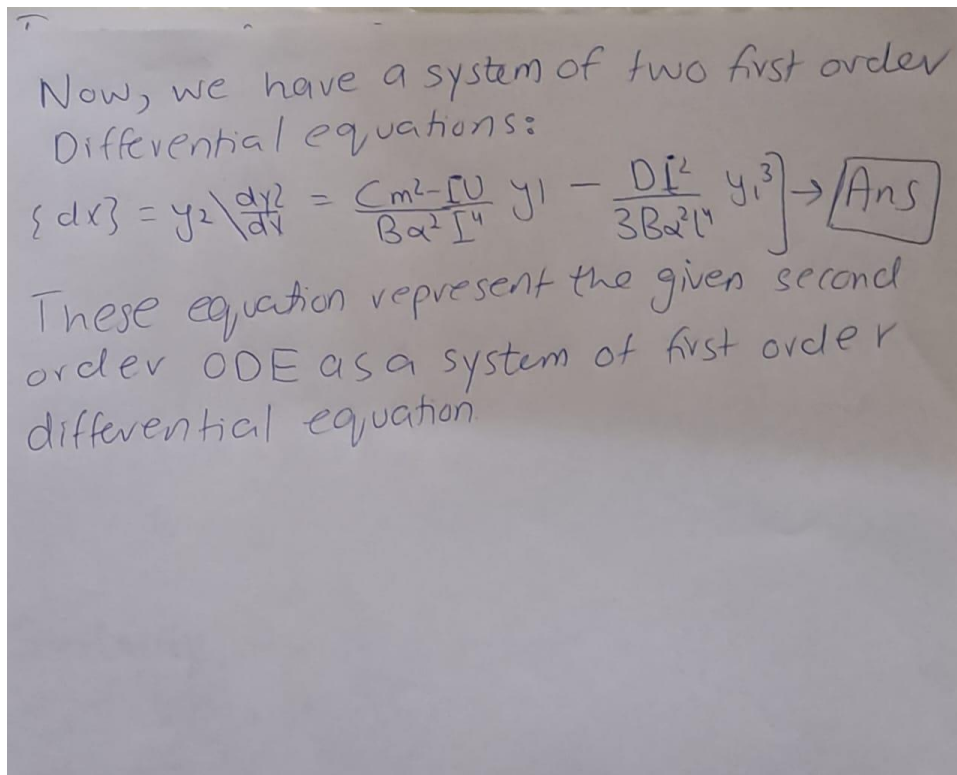 Now, we have a system of two first order
Differential equations:
{dx} = y2\ dy2/dx = (Cm²-IU)/(Bα²I⁴) y1 - (DI²)/(3Bα²l⁴) y1³] → Ans
These equation represent the given second
order ODE as a system of first order
differential equation